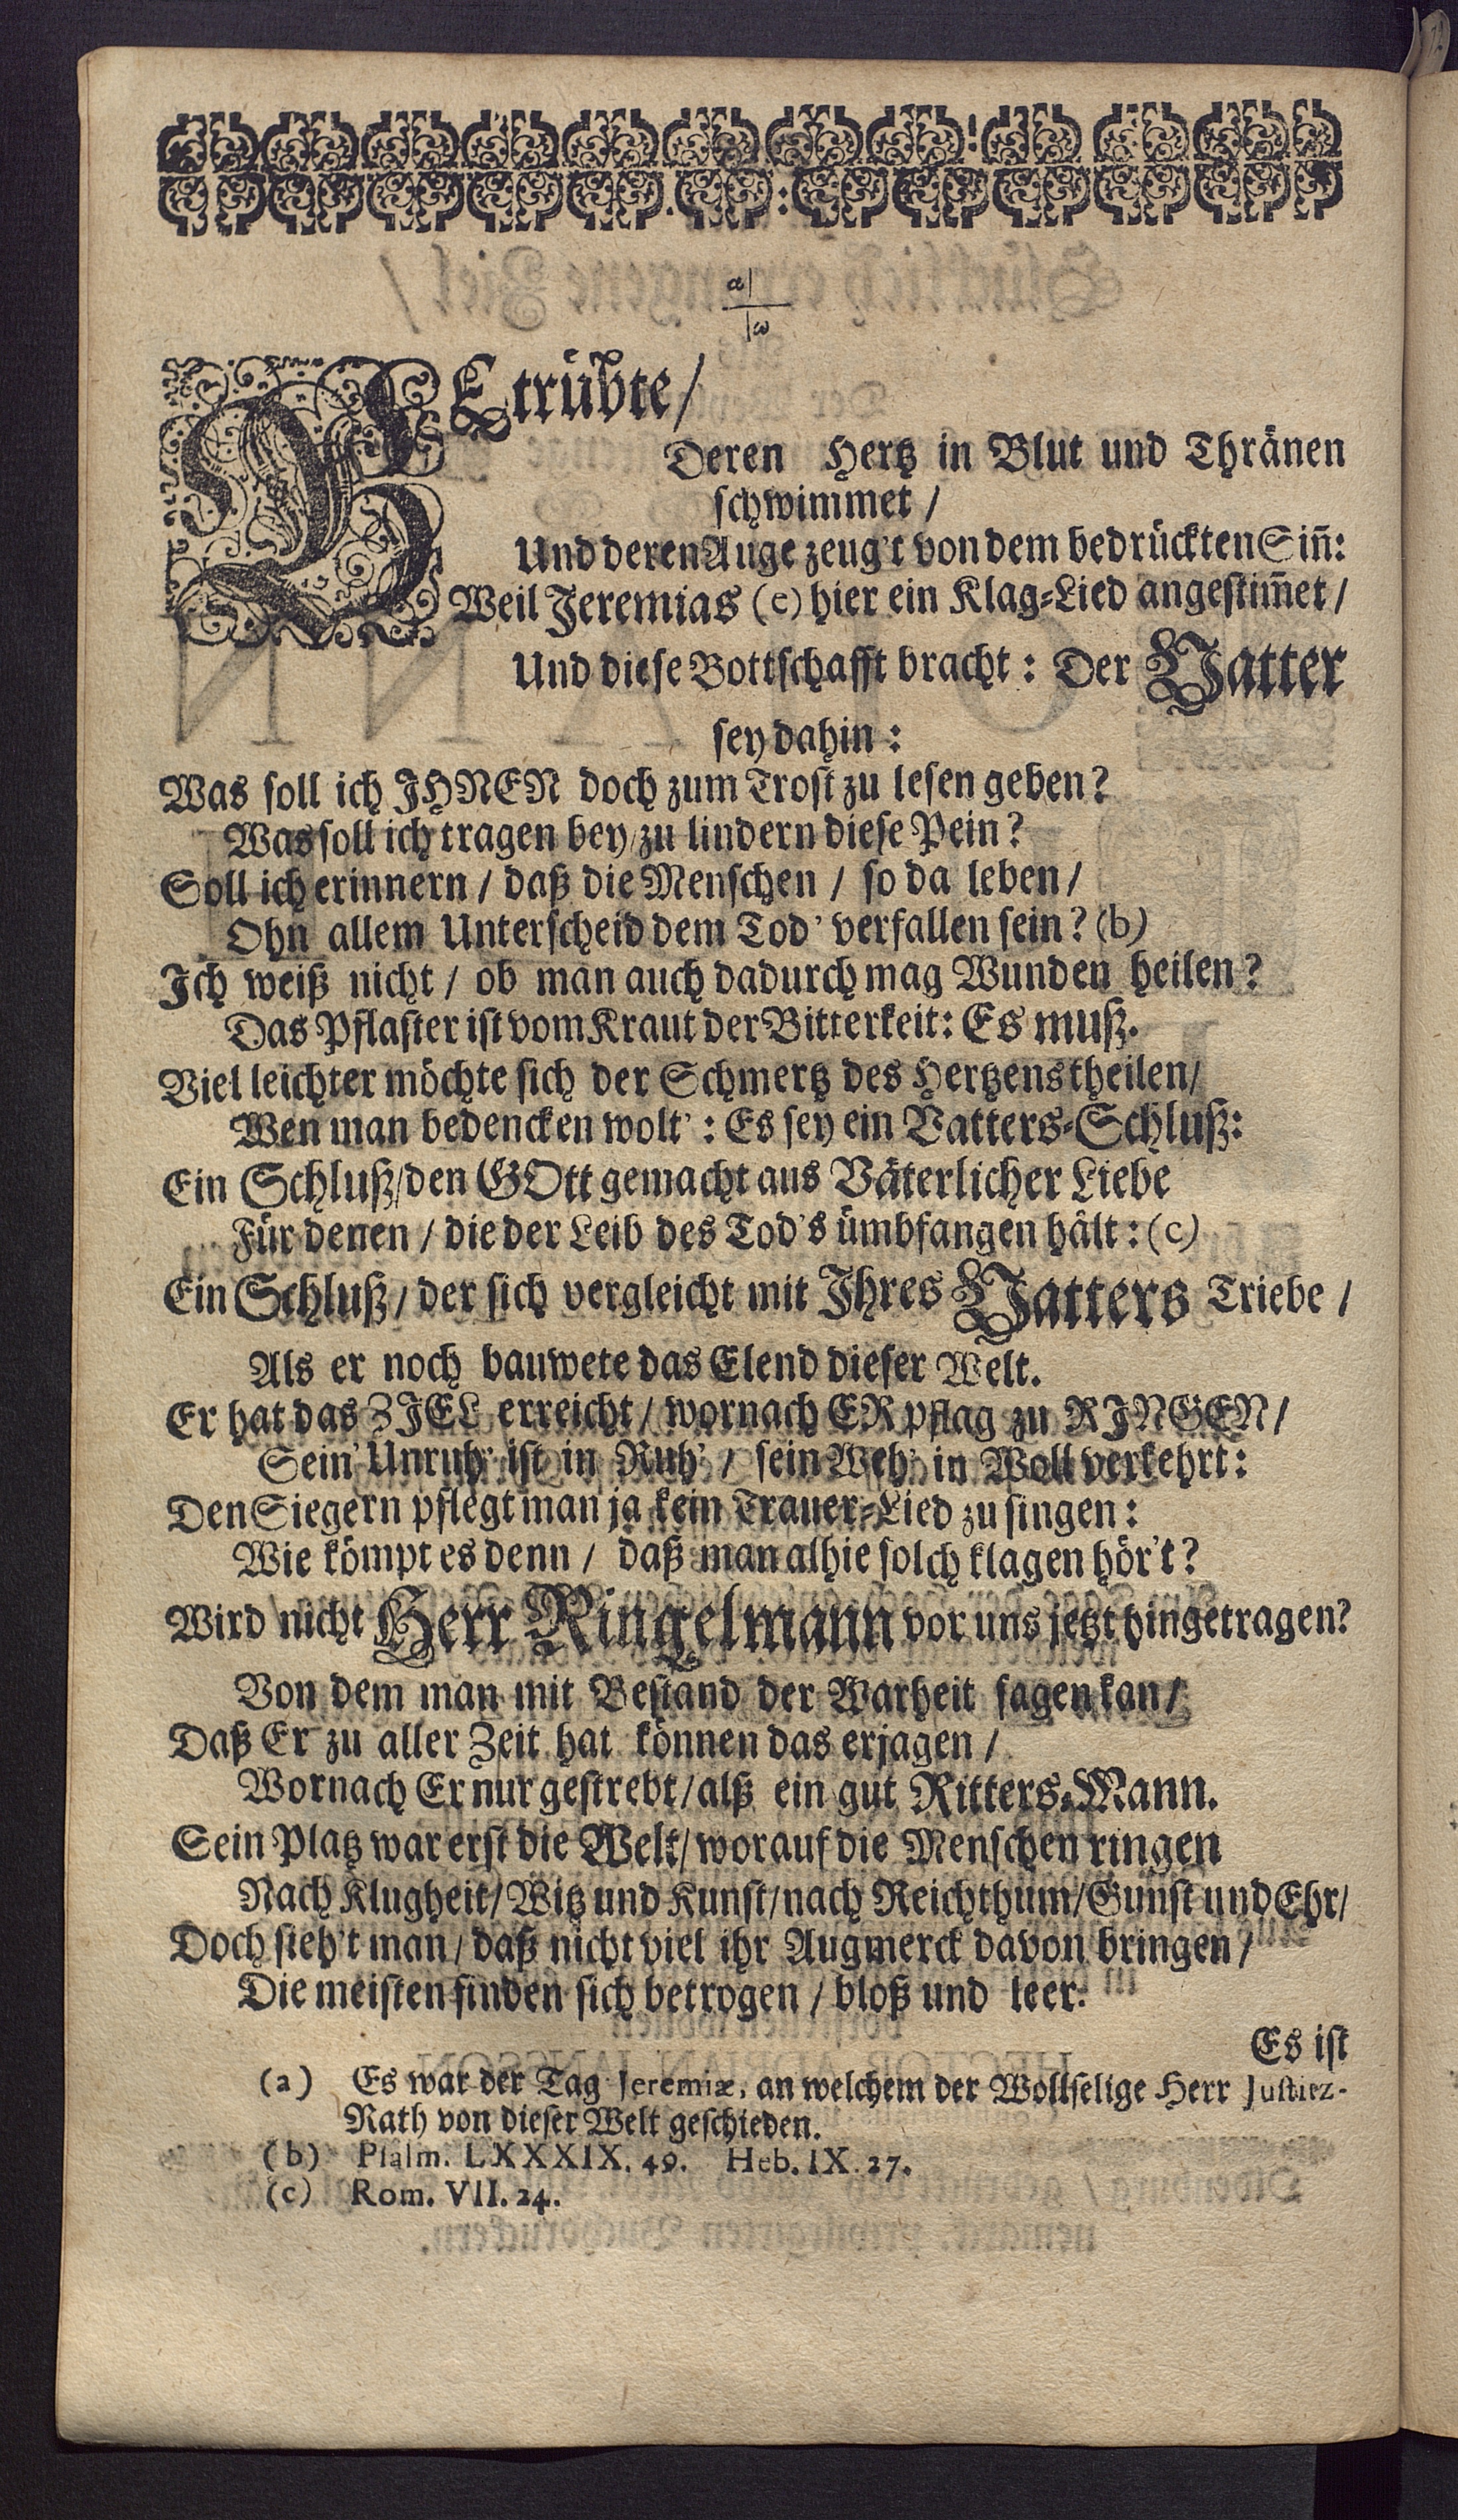 α
ω
BEtrübte/
Deren Hertz in Blut und Thränen
schwimmet /
Und deren Auge zeug't von dem bedrückten Siñ:
Weil Jeremias (e) hier ein Klag-Lied angestim̃et /
Und diese Bottschafft bracht: Der Vatter
sey dahin:
Was soll ich IHNEN doch zum Trost zu lesen geben?
Was soll ich tragen bey/zu lindern diese Pein?
Soll ich erinnern / daß die Menschen / so da leben /
Ohn allem Unterscheid dem Tod' verfallen sein? (b)
Ich weiß nicht / ob man auch dadurch mag Wunden heilen?
Das Pflaster ist vom Kraut der Bitterkeit: Es muß.
Viel leichter möchte sich der Schmertz des Hertzens theilen/
Wen man bedencken wolt': Es sey ein Vatters-Schluß:
Ein Schluß/den GOtt gemacht aus Väterlicher Liebe
Für denen / die der Leib des Tod's ümbfangen hält: (c)
Ein Schluß / der sich vergleicht mit Ihres Vatters Triebe /
Als er noch bauwete das Elend dieser Welt.
Er hat das ZIEL erreicht / wornach ER pflag zu RINGEN /
Sein' Unruh' ist in Ruh' / sein Weh' in Woll verkehrt:
Den Siegern pflegt man ja kein Trauer-Lied zu singen:
Wie kömpt es denn / daß man alhie solch klagen hör't?
Wird nicht Herr Ringelmann vor uns jetzt hingetragen?
Von dem man mit Bestand der Warheit sagen kan /
Daß Er zu aller Zeit hat können das erjagen /
Wornach Er nur gestrebt / alß ein gut Ritters-Mann.
Sein Platz war erst die Welt / worauf die Menschen ringen
Nach Klugheit / Witz und Kunst / nach Reichthum / Gunst und Ehr /
Doch sieh't man / daß nicht viel ihr Augmerck davon bringen /
Die meisten finden sich betrogen / bloß und leer.
Es ist
(a) Es war der Tag Jeremiæ, an welchem der Wollselige Herr Justiez-
Rath von dieser Welt geschieden.
(b) Psalm. LXXXIX. 49. Heb. IX. 27.
(c) Rom. VII. 24.